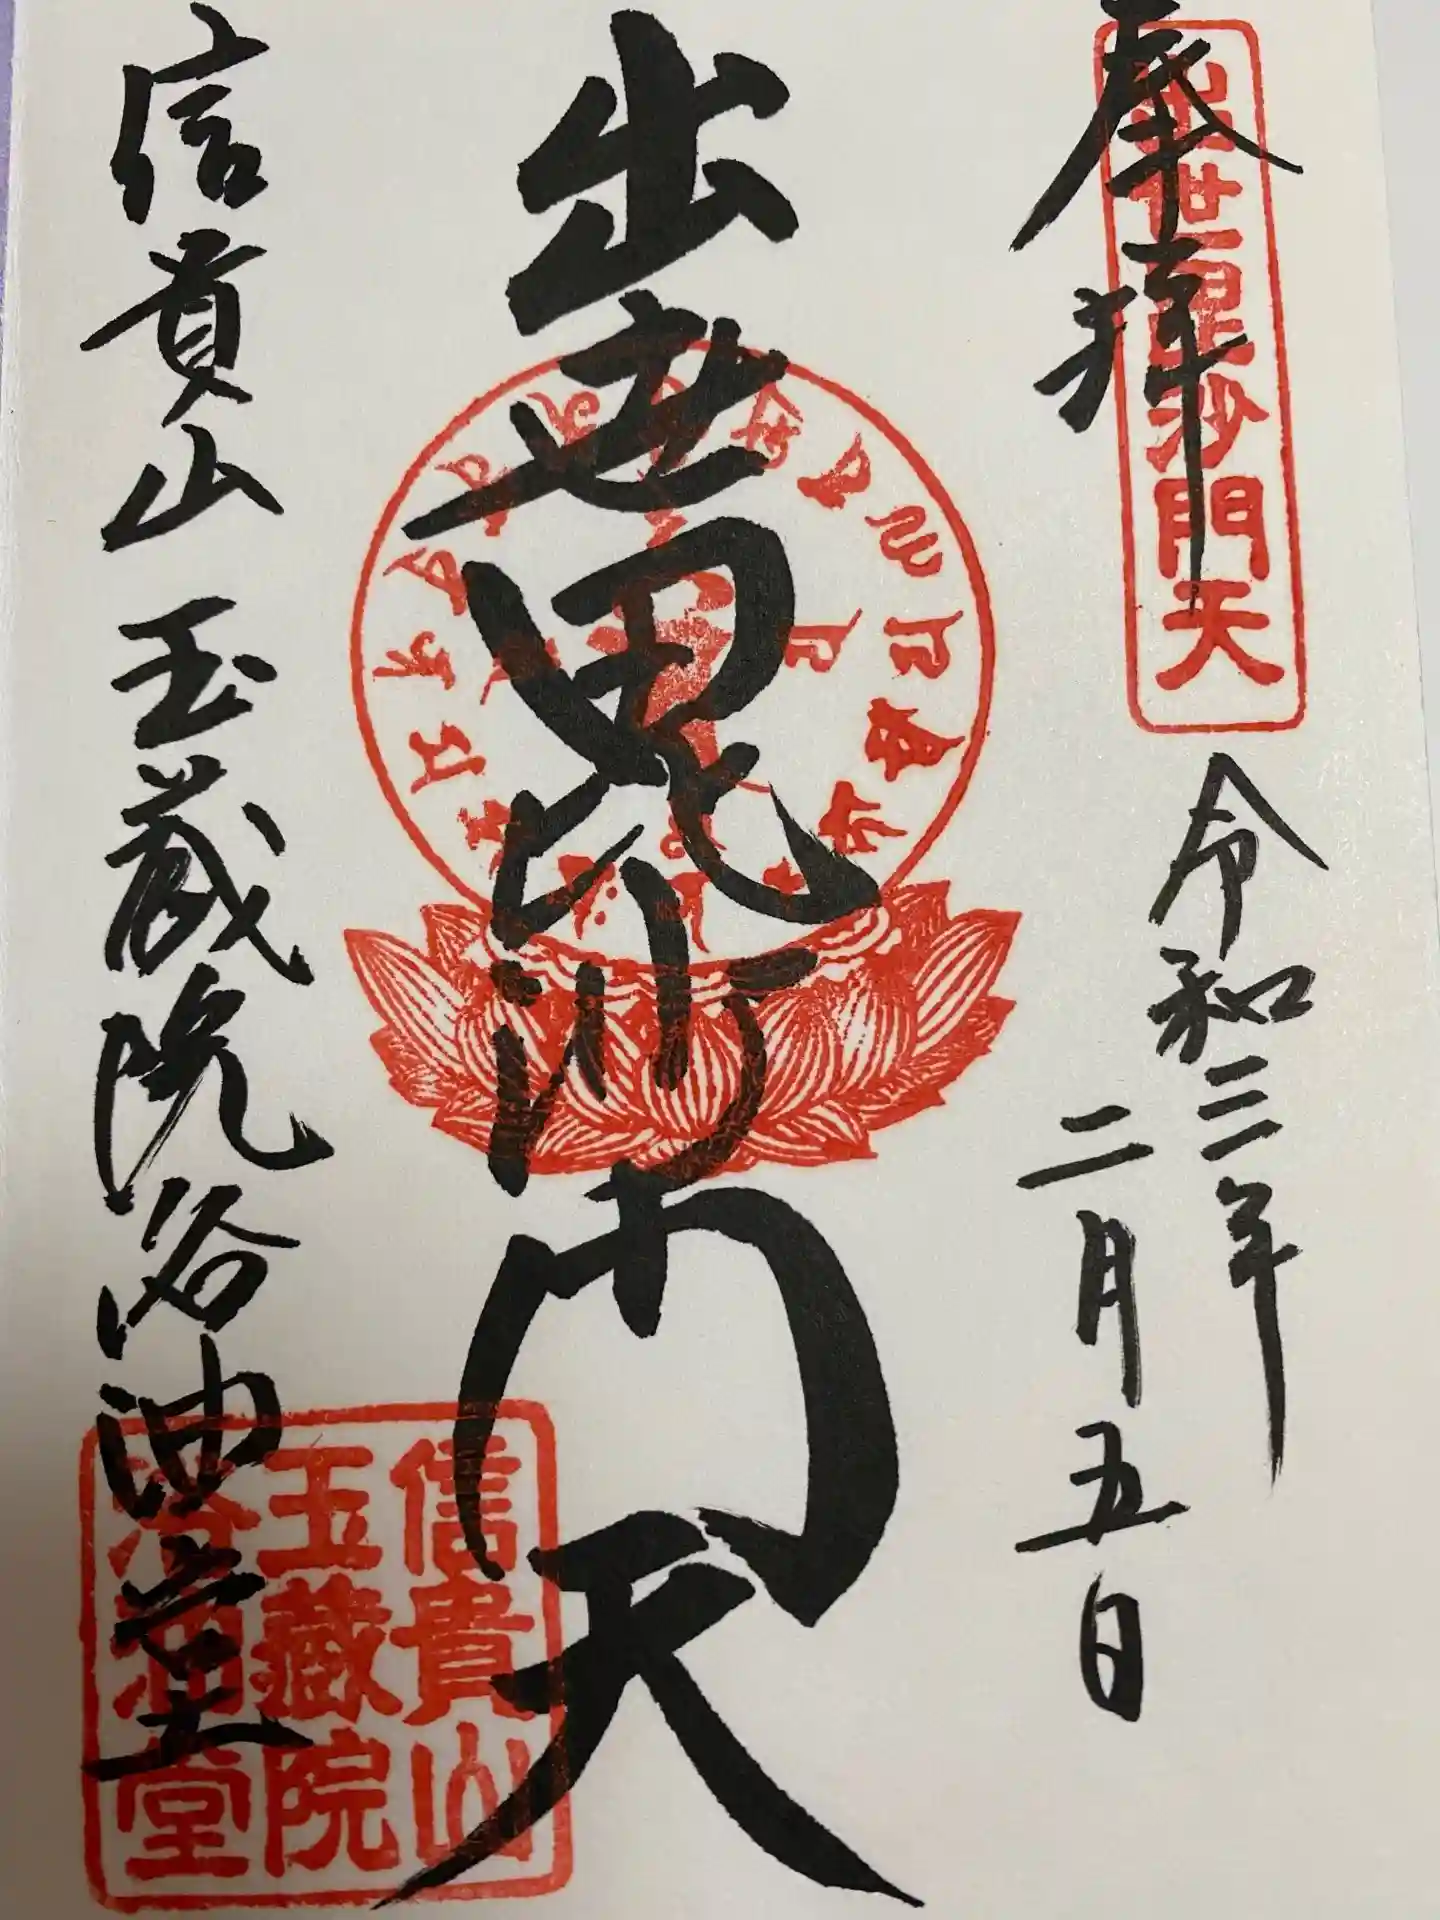 奉拝
出世毘沙門天
令和三年
二月五日
出世毘沙門天
信貴山 玉蔵院浴油堂
信貴山
玉蔵院
浴油堂